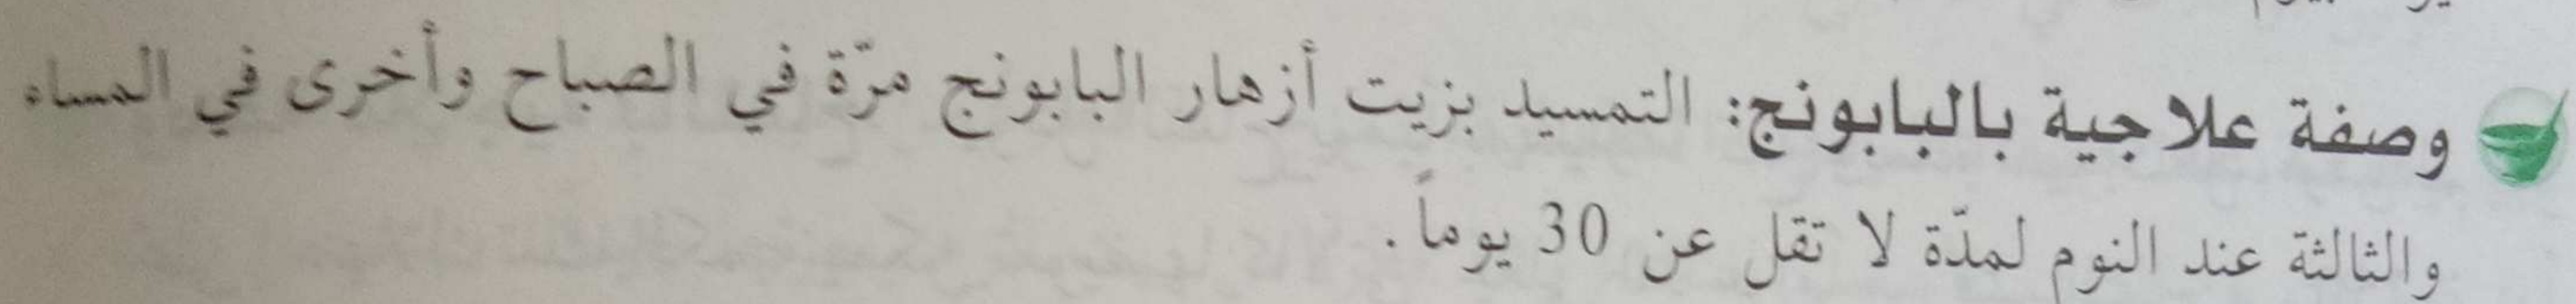 وصفة علاجية بالبابونج: التمسيد بزيت أزهار البابونج مرّة في الصباح وأخرى في المساء
والثالثة عند النوم لمدّة لا تقل عن 30 يوماً.